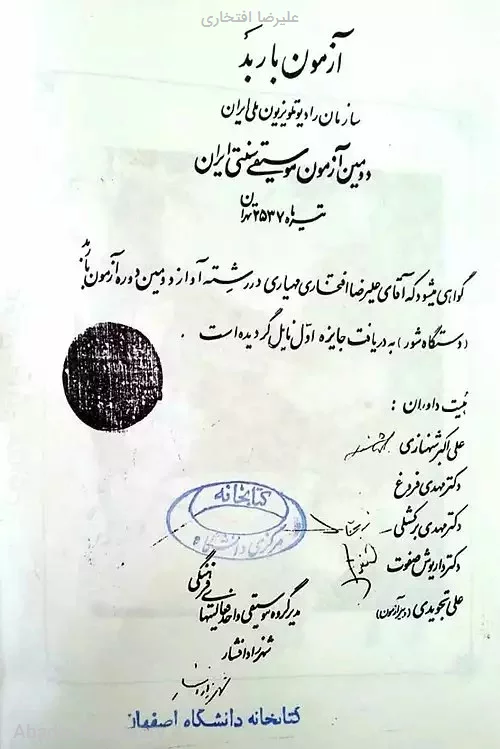 علیرضا افتخاری
آزمون باربد
سازمان رادیو تلویزیون ملی ایران
دومین آزمون موسیقی سنتی ایران
تیرماه ۲۵۳۷ تهران
گواهی میشود که آقای علیرضا افتخاری مهیاری در رشته آواز دومین دوره آزمون باربد
(دستگاه شور) به دریافت جایزه اول نایل گردیده است .
هیئت داوران :
علی اکبر شهنازی
دکتر مهدی فروغ
دکتر مهدی برکشلی
دکتر داریوش صفوت
علی تجویدی (دبیر آزمون)
کتابخانه
مرکزی دانشگاه
مدیر گروه موسیقی واحد فعالیتهای فرهنگی
شهرزاد افشار
کتابخانه دانشگاه اصفهان